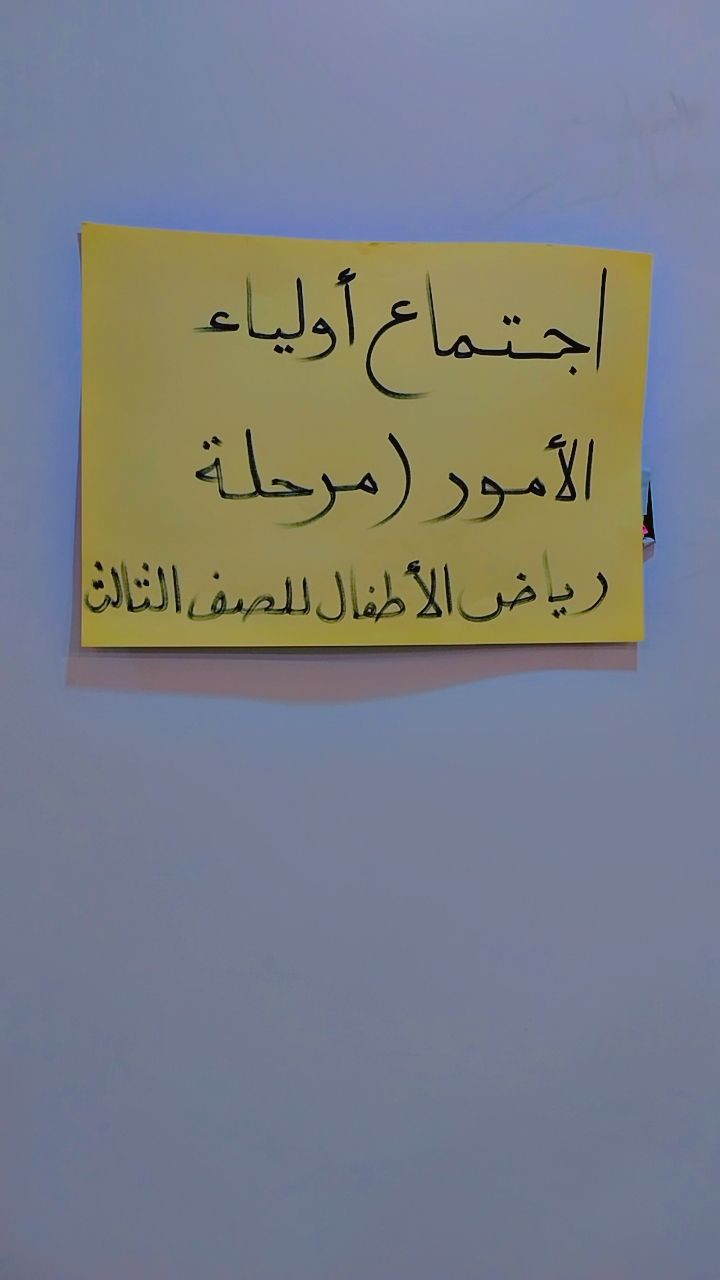 اجتماع أولياء
الأمور (مرحلة
رياض الأطفال للصف الثالث